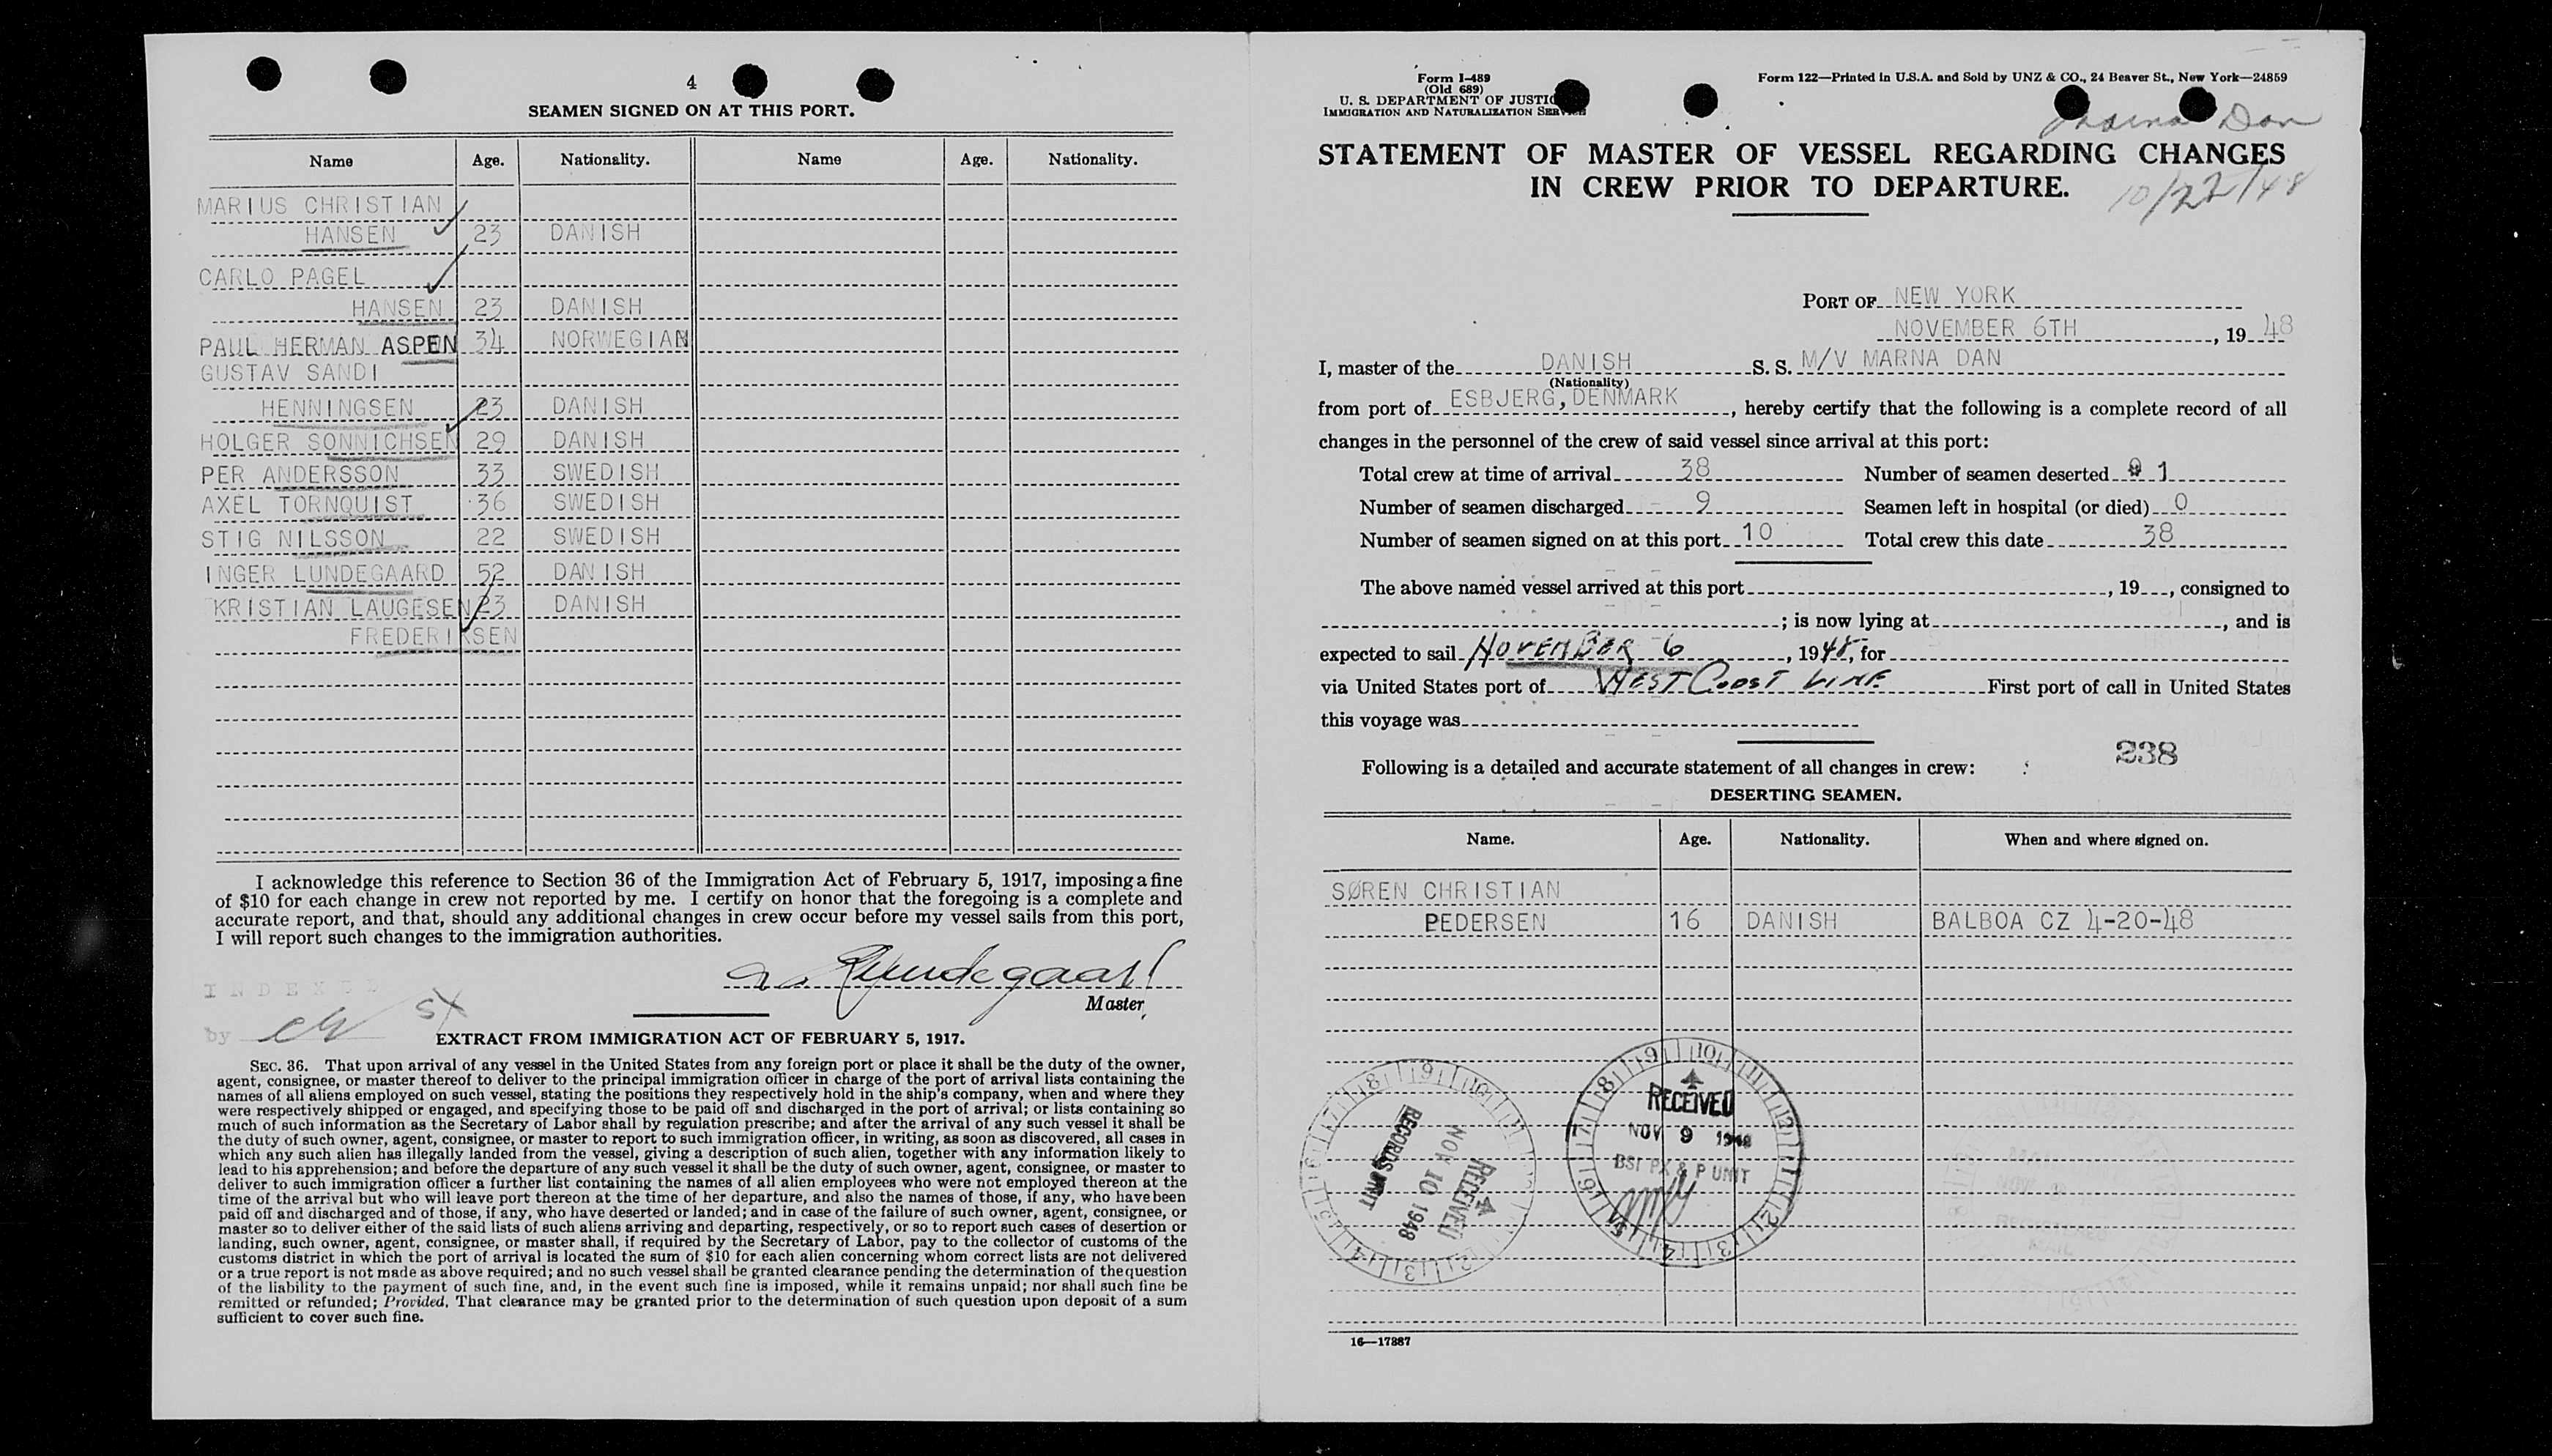 4
SEAMEN SIGNED ON AT THIS PORT.
Name Age. Nationality. Name Age. Nationality.
MARIUS CHRISTIAN
HANSEN 23 DANISH
CARLO PAGEL
HANSEN 23 DANISH
PAUL HERMAN ASPEN 34 NORWEGIAN
GUSTAV SANDI
HENNINGSEN 23 DANISH
HOLGER SONNICHSEN 29 DANISH
PER ANDERSSON 33 SWEDISH
AXEL TORNQUIST 36 SWEDISH
STIG NILSSON 22 SWEDISH
INGER LUNDEGAARD 52 DANISH
KRISTIAN LAUGESEN 23 DANISH
FREDERIKSEN
I acknowledge this reference to Section 36 of the Immigration Act of February 5, 1917, imposing a fine
of $10 for each change in crew not reported by me. I certify on honor that the foregoing is a complete and
accurate report, and that, should any additional changes in crew occur before my vessel sails from this port,
I will report such changes to the immigration authorities.
Master,
INDEXED
by
EXTRACT FROM IMMIGRATION ACT OF FEBRUARY 5, 1917.
SEC. 36. That upon arrival of any vessel in the United States from any foreign port or place it shall be the duty of the owner,
agent, consignee, or master thereof to deliver to the principal immigration officer in charge of the port of arrival lists containing the
names of all aliens employed on such vessel, stating the positions they respectively hold in the ship's company, when and where they
were respectively shipped or engaged, and specifying those to be paid off and discharged in the port of arrival; or lists containing so
much of such information as the Secretary of Labor shall by regulation prescribe; and after the arrival of any such vessel it shall be
the duty of such owner, agent, consignee, or master to report to such immigration officer, in writing, as soon as discovered, all cases in
which any such alien has illegally landed from the vessel, giving a description of such alien, together with any information likely to
lead to his apprehension; and before the departure of any such vessel it shall be the duty of such owner, agent, consignee, or master to
deliver to such immigration officer a further list containing the names of all alien employees who were not employed thereon at the
time of the arrival but who will leave port thereon at the time of her departure, and also the names of those, if any, who have been
paid off and discharged and of those, if any, who have deserted or landed; and in case of the failure of such owner, agent, consignee, or
master so to deliver either of the said lists of such aliens arriving and departing, respectively, or so to report such cases of desertion or
landing, such owner, agent, consignee, or master shall, if required by the Secretary of Labor, pay to the collector of customs of the
customs district in which the port of arrival is located the sum of $10 for each alien concerning whom correct lists are not delivered
or a true report is not made as above required; and no such vessel shall be granted clearance pending the determination of the question
of the liability to the payment of such fine, and, in the event such fine is imposed, while it remains unpaid; nor shall such fine be
remitted or refunded; Provided, That clearance may be granted prior to the determination of such question upon deposit of a sum
sufficient to cover such fine.
Form I-489
(Old 689)
U. S. DEPARTMENT OF JUSTIC
IMMIGRATION AND NATURALIZATION SERVICE
Form 122—Printed in U.S.A. and Sold by UNZ & CO., 24 Beaver St., New York—24859
Marna Dan
STATEMENT OF MASTER OF VESSEL REGARDING CHANGES
IN CREW PRIOR TO DEPARTURE.
10/22/48
PORT OF NEW YORK
NOVEMBER 6TH, 19 48
I, master of the DANISH S. S. M/V MARNA DAN
(Nationality)
from port of ESBJERG, DENMARK, hereby certify that the following is a complete record of all
changes in the personnel of the crew of said vessel since arrival at this port:
Total crew at time of arrival 38 Number of seamen deserted 1
Number of seamen discharged 9 Seamen left in hospital (or died) 0
Number of seamen signed on at this port 10 Total crew this date 38
The above named vessel arrived at this port , 19 , consigned to
; is now lying at , and is
expected to sail NOVEMBER 6, 1948, for
via United States port of WEST COAST LINE First port of call in United States
this voyage was
238
Following is a detailed and accurate statement of all changes in crew:
DESERTING SEAMEN.
Name. Age. Nationality. When and where signed on.
SØREN CHRISTIAN
PEDERSEN 16 DANISH BALBOA CZ 4-20-48
RECEIVED
NOV 10 1948
RECORDS UNIT
RECEIVED
NOV 9 1948
BSI PX & P UNIT
16—17887